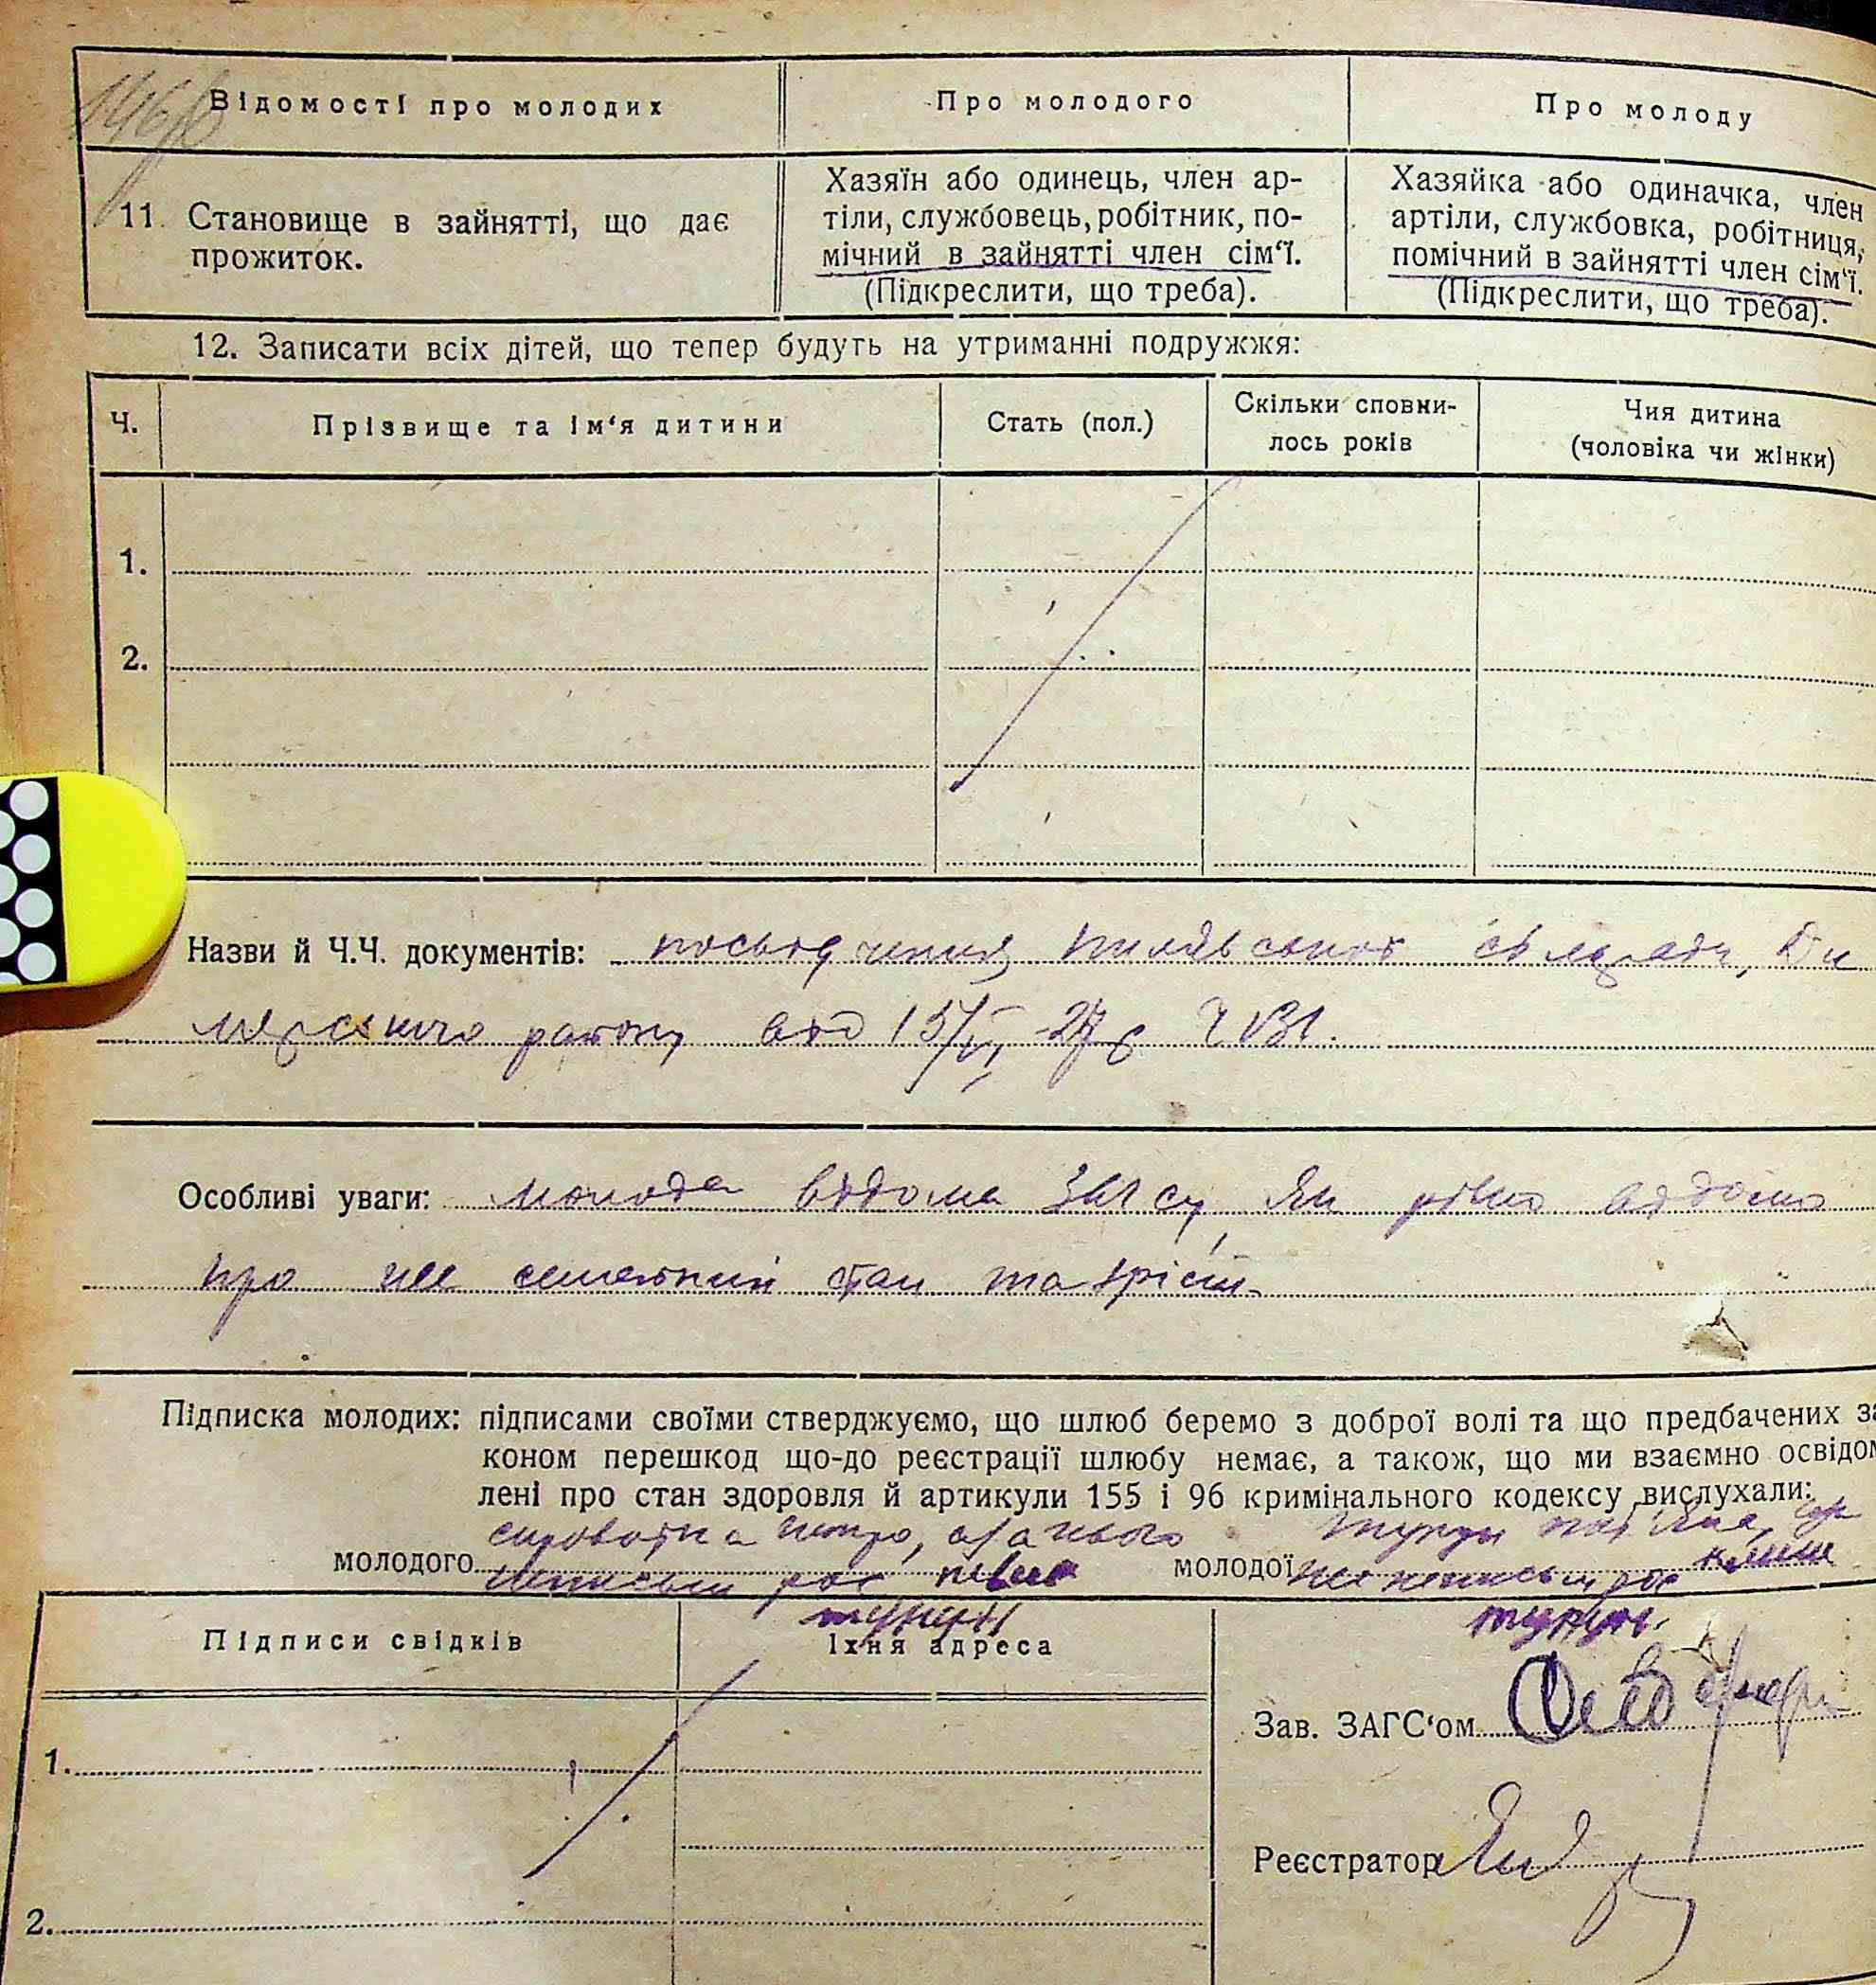 Відомості про молодих
Про молодого
Про молоду
11. Становище в зайнятті, що дає
прожиток.
Хазяїн або одинець, член ар-
тіли, службовець, робітник, по-
мічний в зайнятті член сім‘ї.
(Підкреслити, що треба).
Хазяйка або одиначка, член
артіли, службовка, робітниця,
помічний в зайнятті член сім‘ї.
(Підкреслити, що треба).
12. Записати всіх дітей, що тепер будуть на утриманні подружжя:
Ч.
Прізвище та ім‘я дитини
Стать (пол.)
Скільки сповни-
лось років
Чия дитина
(чоловіка чи жінки)
1.
2.
Назви й Ч.Ч. документів: посьвідчення сільради,
району від 15/VI 27 р.
Особливі уваги: молода відома ЗАГСу, як рівно відомо
про неї семейний стан та зріст.
Підписка молодих: підписами своїми стверджуємо, що шлюб беремо з доброї волі та що предбачених за
коном перешкод що-до реєстрації шлюбу немає, а також, що ми взаємно освідом
лені про стан здоровля й артикули 155 і 96 кримінального кодексу вислухали:
молодого
молодої
Підписи свідків
Їхня адреса
1.
2.
Зав. ЗАГС‘ом
Реєстратор